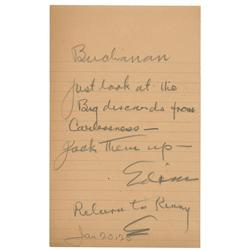 Buchanan
Just look at the
Big discards from
Carlessness—
Jack them up—
Edison
Return to Kenny
E
Jan 20. 20